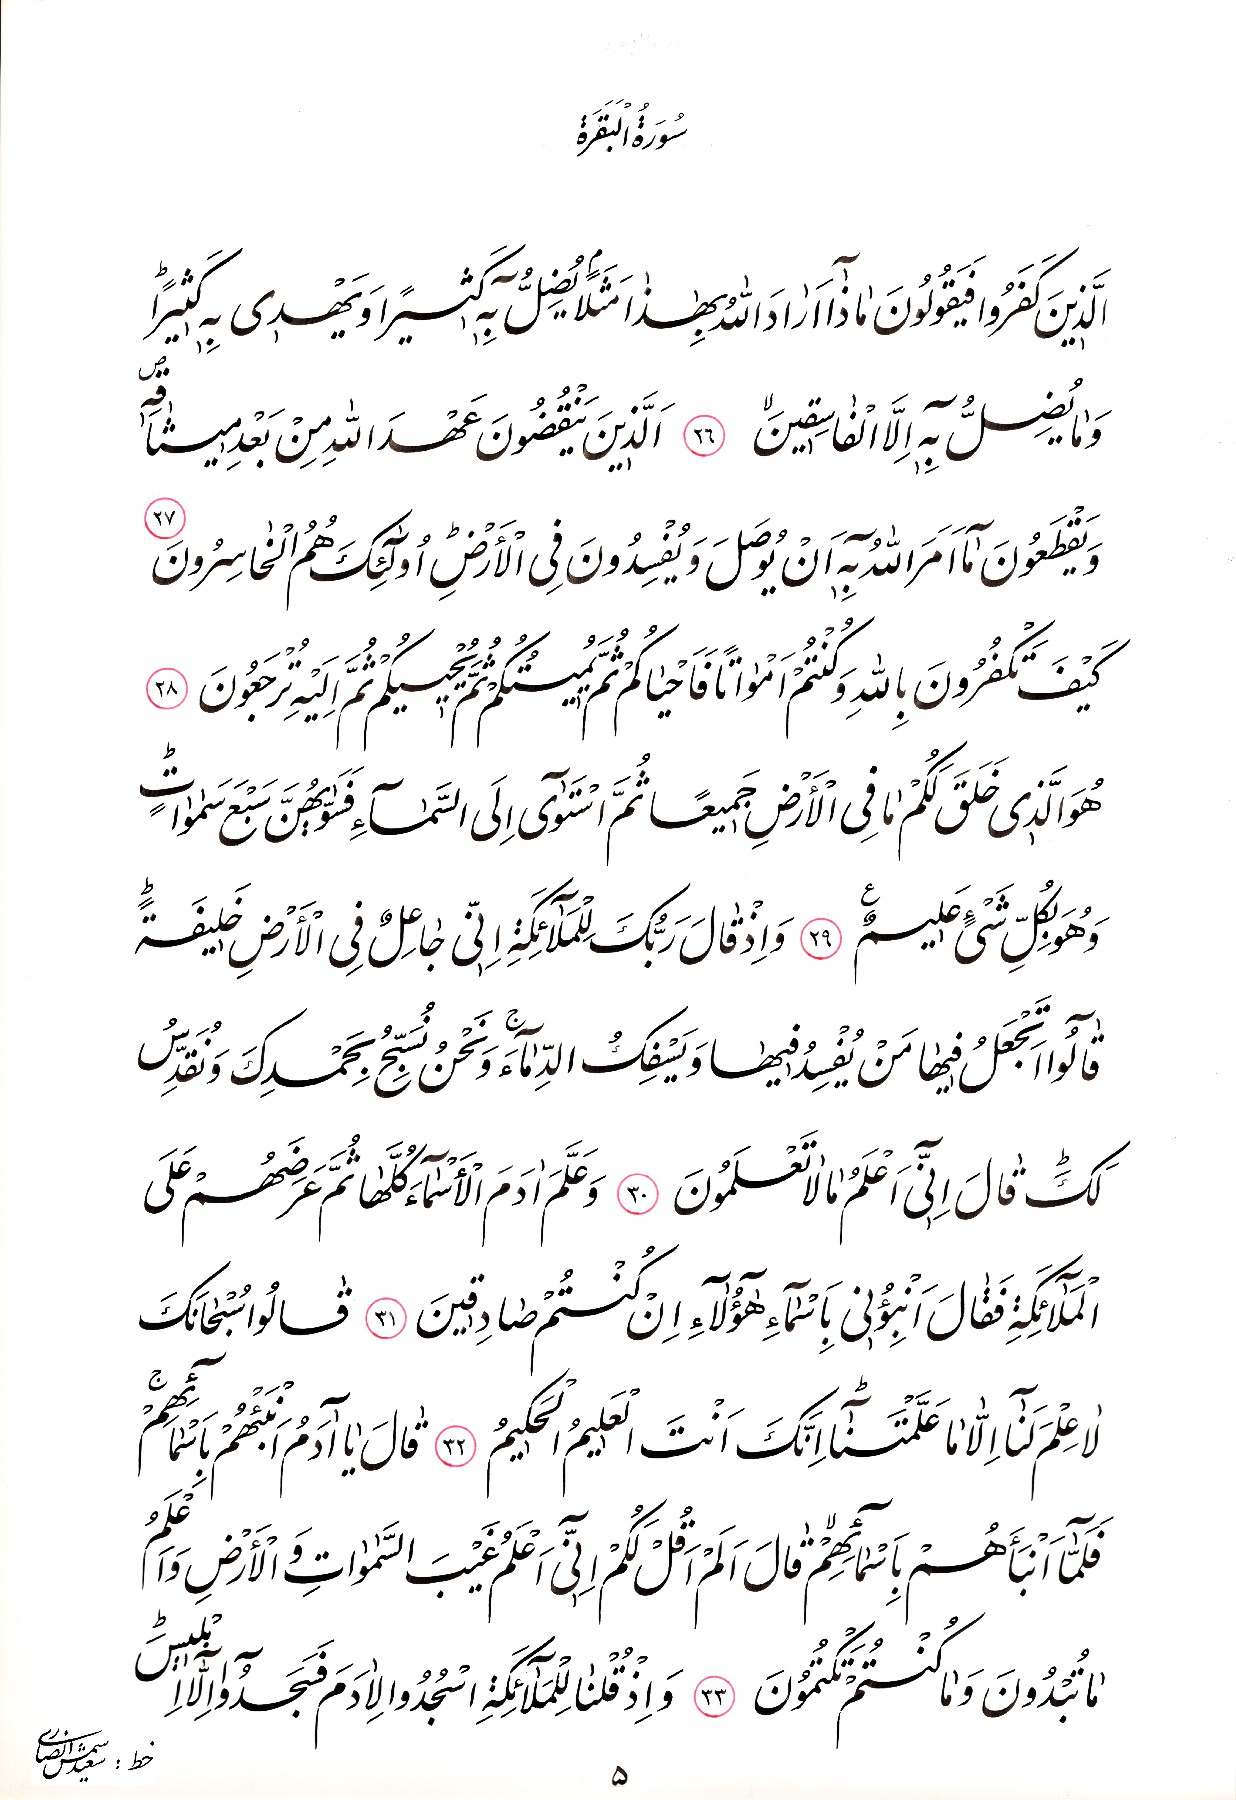 سُورَةُ الْبَقَرَةِ
الَّذِينَ كَفَرُوا فَيَقُولُونَ مَاذَٓا اَرَادَ اللّٰهُ بِهٰذَا مَثَلًاۢ يُضِلُّ بِهٖٓ كَثِيرًا وَيَهْدِى بِهٖ كَثِيرًاؕ
وَمَا يُضِلُّ بِهٖٓ اِلَّا الْفَاسِقِينَۙ ٢٦ اَلَّذِينَ يَنْقُضُونَ عَهْدَ اللّٰهِ مِنْ بَعْدِ مِيثَاقِهٖࣕ
وَيَقْطَعُونَ مَٓا اَمَرَ اللّٰهُ بِهٖٓ اَنْ يُوصَلَ وَيُفْسِدُونَ فِى الْاَرْضِؕ اُولٰٓئِكَ هُمُ الْخَاسِرُونَ ٢٧
كَيْفَ تَكْفُرُونَ بِاللّٰهِ وَكُنْتُمْ اَمْوَاتًا فَاَحْيَاكُمْ ثُمَّ يُمِيتُكُمْ ثُمَّ يُحْيِيكُمْ ثُمَّ اِلَيْهِ تُرْجَعُونَ ٢٨
هُوَ الَّذِى خَلَقَ لَكُمْ مَا فِى الْاَرْضِ جَمِيعًا ثُمَّ اسْتَوٰٓى اِلَى السَّمَٓاءِ فَسَوّٰيهُنَّ سَبْعَ سَمٰوَاتٍؕ
وَهُوَ بِكُلِّ شَىْءٍ عَلِيمٌࣖ ٢٩ وَاِذْ قَالَ رَبُّكَ لِلْمَلَٓائِكَةِ اِنِّى جَاعِلٌ فِى الْاَرْضِ خَلِيفَةًؕ
قَالُٓوا اَتَجْعَلُ فِيهَا مَنْ يُفْسِدُ فِيهَا وَيَسْفِكُ الدِّمَٓاءَۚ وَنَحْنُ نُسَبِّحُ بِحَمْدِكَ وَنُقَدِّسُ
لَكَؕ قَالَ اِنِّىٓ اَعْلَمُ مَا لَا تَعْلَمُونَ ٣٠ وَعَلَّمَ اٰدَمَ الْاَسْمَٓاءَ كُلَّهَا ثُمَّ عَرَضَهُمْ عَلَى
الْمَلَٓائِكَةِ فَقَالَ اَنْبِؤُنِى بِاَسْمَٓاءِ هٰٓؤُلَٓاءِ اِنْ كُنْتُمْ صَادِقِينَ ٣١ قَالُوا سُبْحَانَكَ
لَا عِلْمَ لَنَٓا اِلَّا مَا عَلَّمْتَنَاؕٓ اِنَّكَ اَنْتَ الْعَلِيمُ الْحَكِيمُ ٣٢ قَالَ يَٓا اٰدَمُ اَنْبِئْهُمْ بِاَسْمَٓائِهِمْۚ
فَلَمَّٓا اَنْبَاَهُمْ بِاَسْمَٓائِهِمْۙ قَالَ اَلَمْ اَقُلْ لَكُمْ اِنِّىٓ اَعْلَمُ غَيْبَ السَّمٰوَاتِ وَ الْاَرْضِ وَاَعْلَمُ
مَا تُبْدُونَ وَمَا كُنْتُمْ تَكْتُمُونَ ٣٣ وَاِذْ قُلْنَا لِلْمَلَٓائِكَةِ اسْجُدُوا لِاٰدَمَ فَسَجَدُٓوا اِلَّٓا اِبْلِيسَؕ
خط : سعيد شمس انصاری
۵